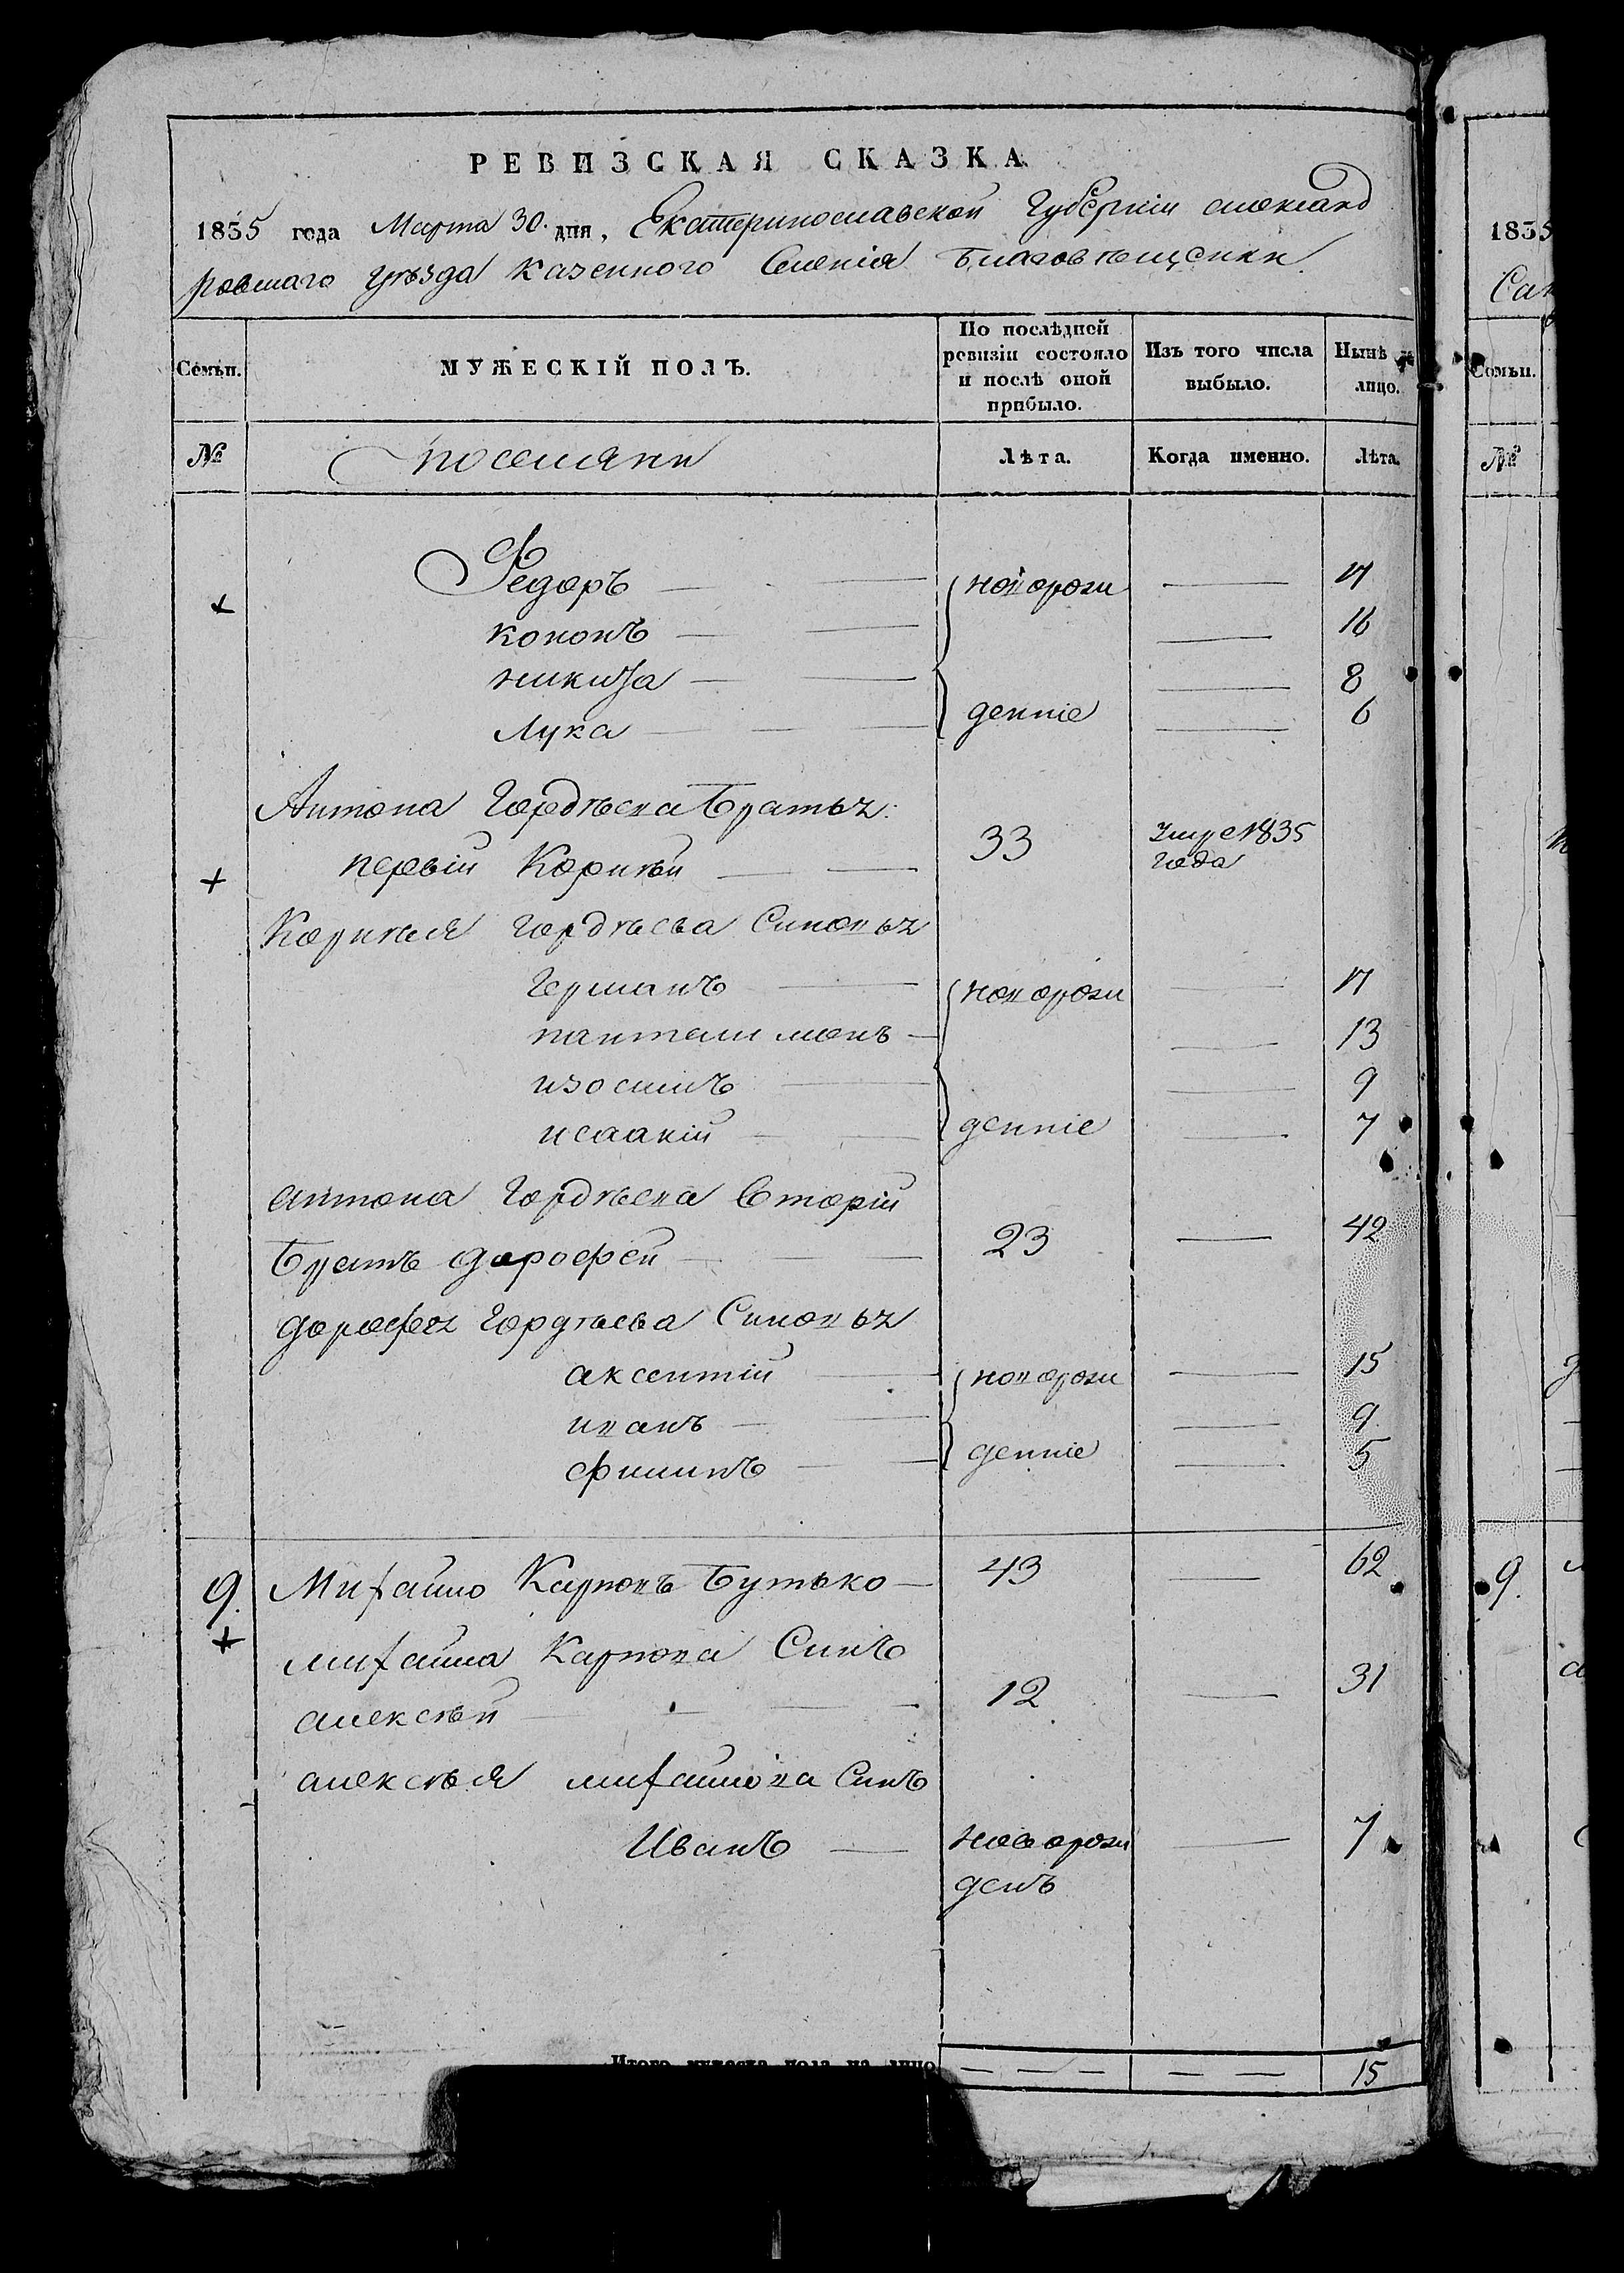 РЕВИЗСКАЯ СКАЗКА
1835 года Марта 30. дня, Екатеринославской Губернiи александ
ровскаго уѣзда казенного Селенiя Благовѣщенки.
Семьи. МУЖЕСКIЙ ПОЛЪ. По послѣдней ревизiи состояло и послѣ оной прибыло. Изъ того числа выбыло. Нынѣ на лицо.
№ поселяни Лѣта. Когда именно. Лѣта.
Федоръ — новорож — 17
кононъ — — 16
никита — — 8
Лука — денніе — 6
Антона Гордѣева братья:
первій Корнѣй — 33 Умре 1835 года
Корнѣя гордѣева Синовья
германъ — новорож — 17
пантелимонъ — — 13
изосимъ — — 9
исаакій — денніе — 7
антона Гордѣева вторій
братъ дорофей — 23 — 42
дорофея гордѣева Синовья
аксентій — новорож — 15
иванъ — — 9
филипъ — денніе — 5
9. Михайло Карповъ Бутько — 43 — 62
михайла Карпова Синъ
алексѣй — 12 — 31
алексѣя михайлова Синъ
Иванъ — новорож — 7
денъ
Итого мужеска пола на лицо — — — — — 15
1835
№
9.